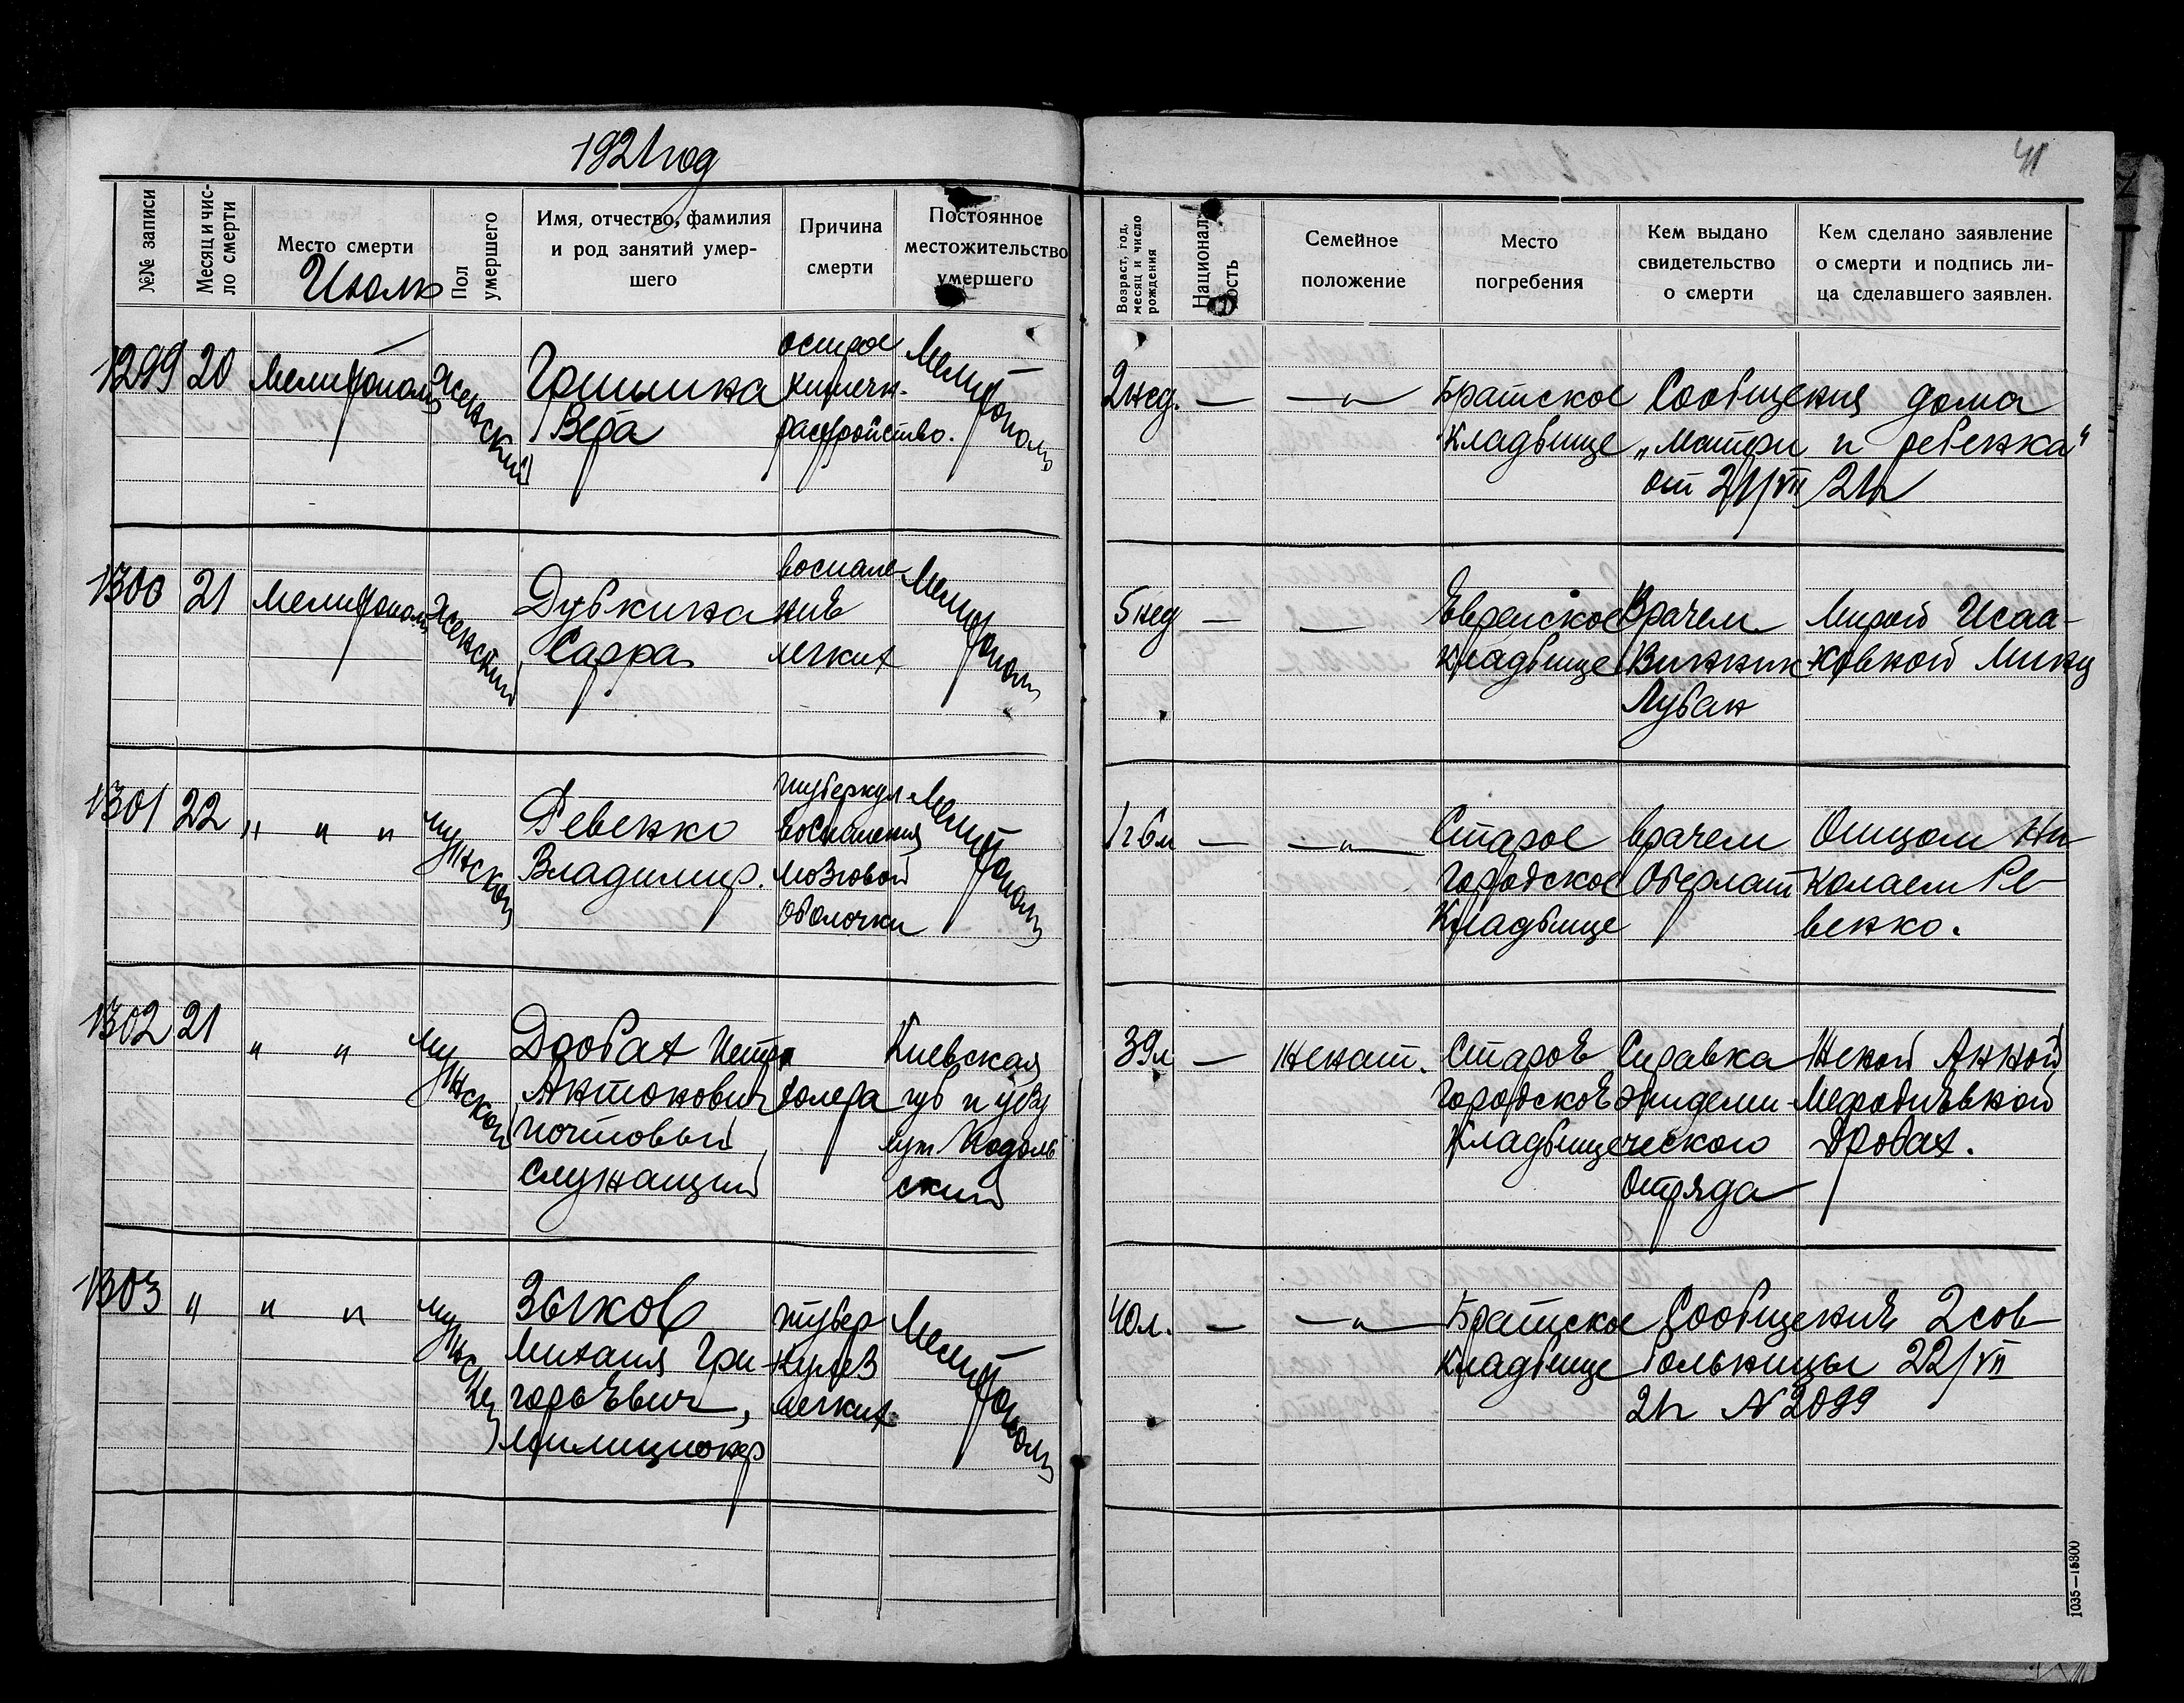 1921 год
41
№№ записи
Месяц и чис-
ло смерти
Место смерти
Июль
Пол
умершего
Имя, отчество, фамилия
и род занятий умер-
шего
Причина
смерти
Постоянное
местожительство
умершего
Возраст, год,
месяц и число
рождения
Националь
ность
Семейное
положение
Место
погребения
Кем выдано
свидетельство
о смерти
Кем сделано заявление
о смерти и подпись ли-
ца сделавшего заявлен.
1299
20
Мелитополь
Женский
Гришика
Вера
острое
кишечн.
расстройство.
Мелитополь
2 нед.
—
— „ —
Братское
Кладбище
Сообщения дома
„Матери и ребенка“
от 21/VII 21г
1300
21
Мелитополь
Женский
Дубкина
Сарра
воспале-
ниѣ
легких
Мелитополь
5 нед
—
—
Еврейское
Кладбище
Врачем
Винник
Лубан
Мирой Исаа-
ковной Минц
1301
22
„ „ „
мужской
Ревенко
Владимир.
туберкул
воспаления
мозговой
оболочки
Мелитополь
1 г 6 м
—
— „ —
Старое
Городское
Кладбище
врачем
Оберлат
Отцом Ни-
колаем Ре-
венко.
1302
21
„ „
мужской
Дробах Петр
Антонович
почтовый
служащий
холера
Киевская
губ и уезд
Подоль
ский
39 л
—
женат.
Староѣ
Городскоѣ
Кладбище
Справка
эпидеми-
ческого
Отряда
Женой Анной
Мефодиѣвной
Дробах.
1303
„
„ „
мужской
Зыков
Михаил Гри-
горьѣвич,
милиционер
тубер
кулез
легких
Мелитополь
40 л.
—
— „ —
Братское
Кладбище
Сообщениѣ 2 сов
больницы 22/VII
21г № 2099
1035—15800